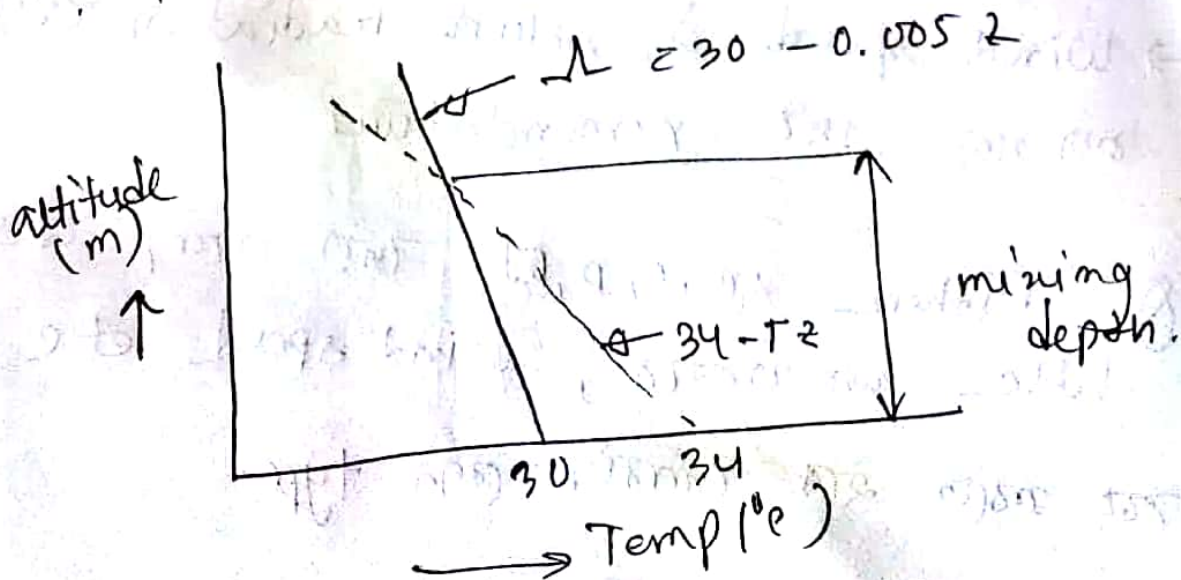 Λ = 30 - 0.005 Z
altitude
(m)
34-Γz
mixing
depth.
30
34
Temp (°C)